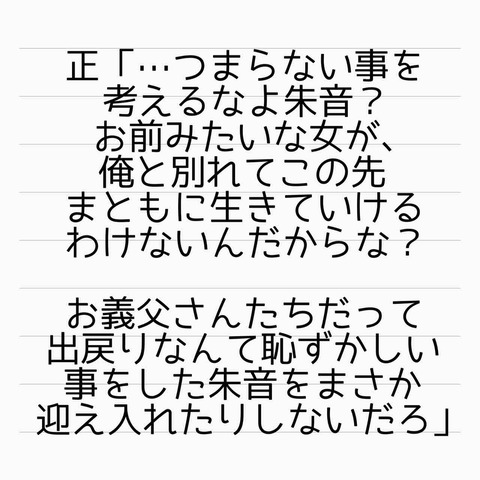 正「…つまらない事を
考えるなよ朱音？
お前みたいな女が、
俺と別れてこの先
まともに生きていける
わけないんだからな？
お義父さんたちだって
出戻りなんて恥ずかしい
事をした朱音をまさか
迎え入れたりしないだろ」